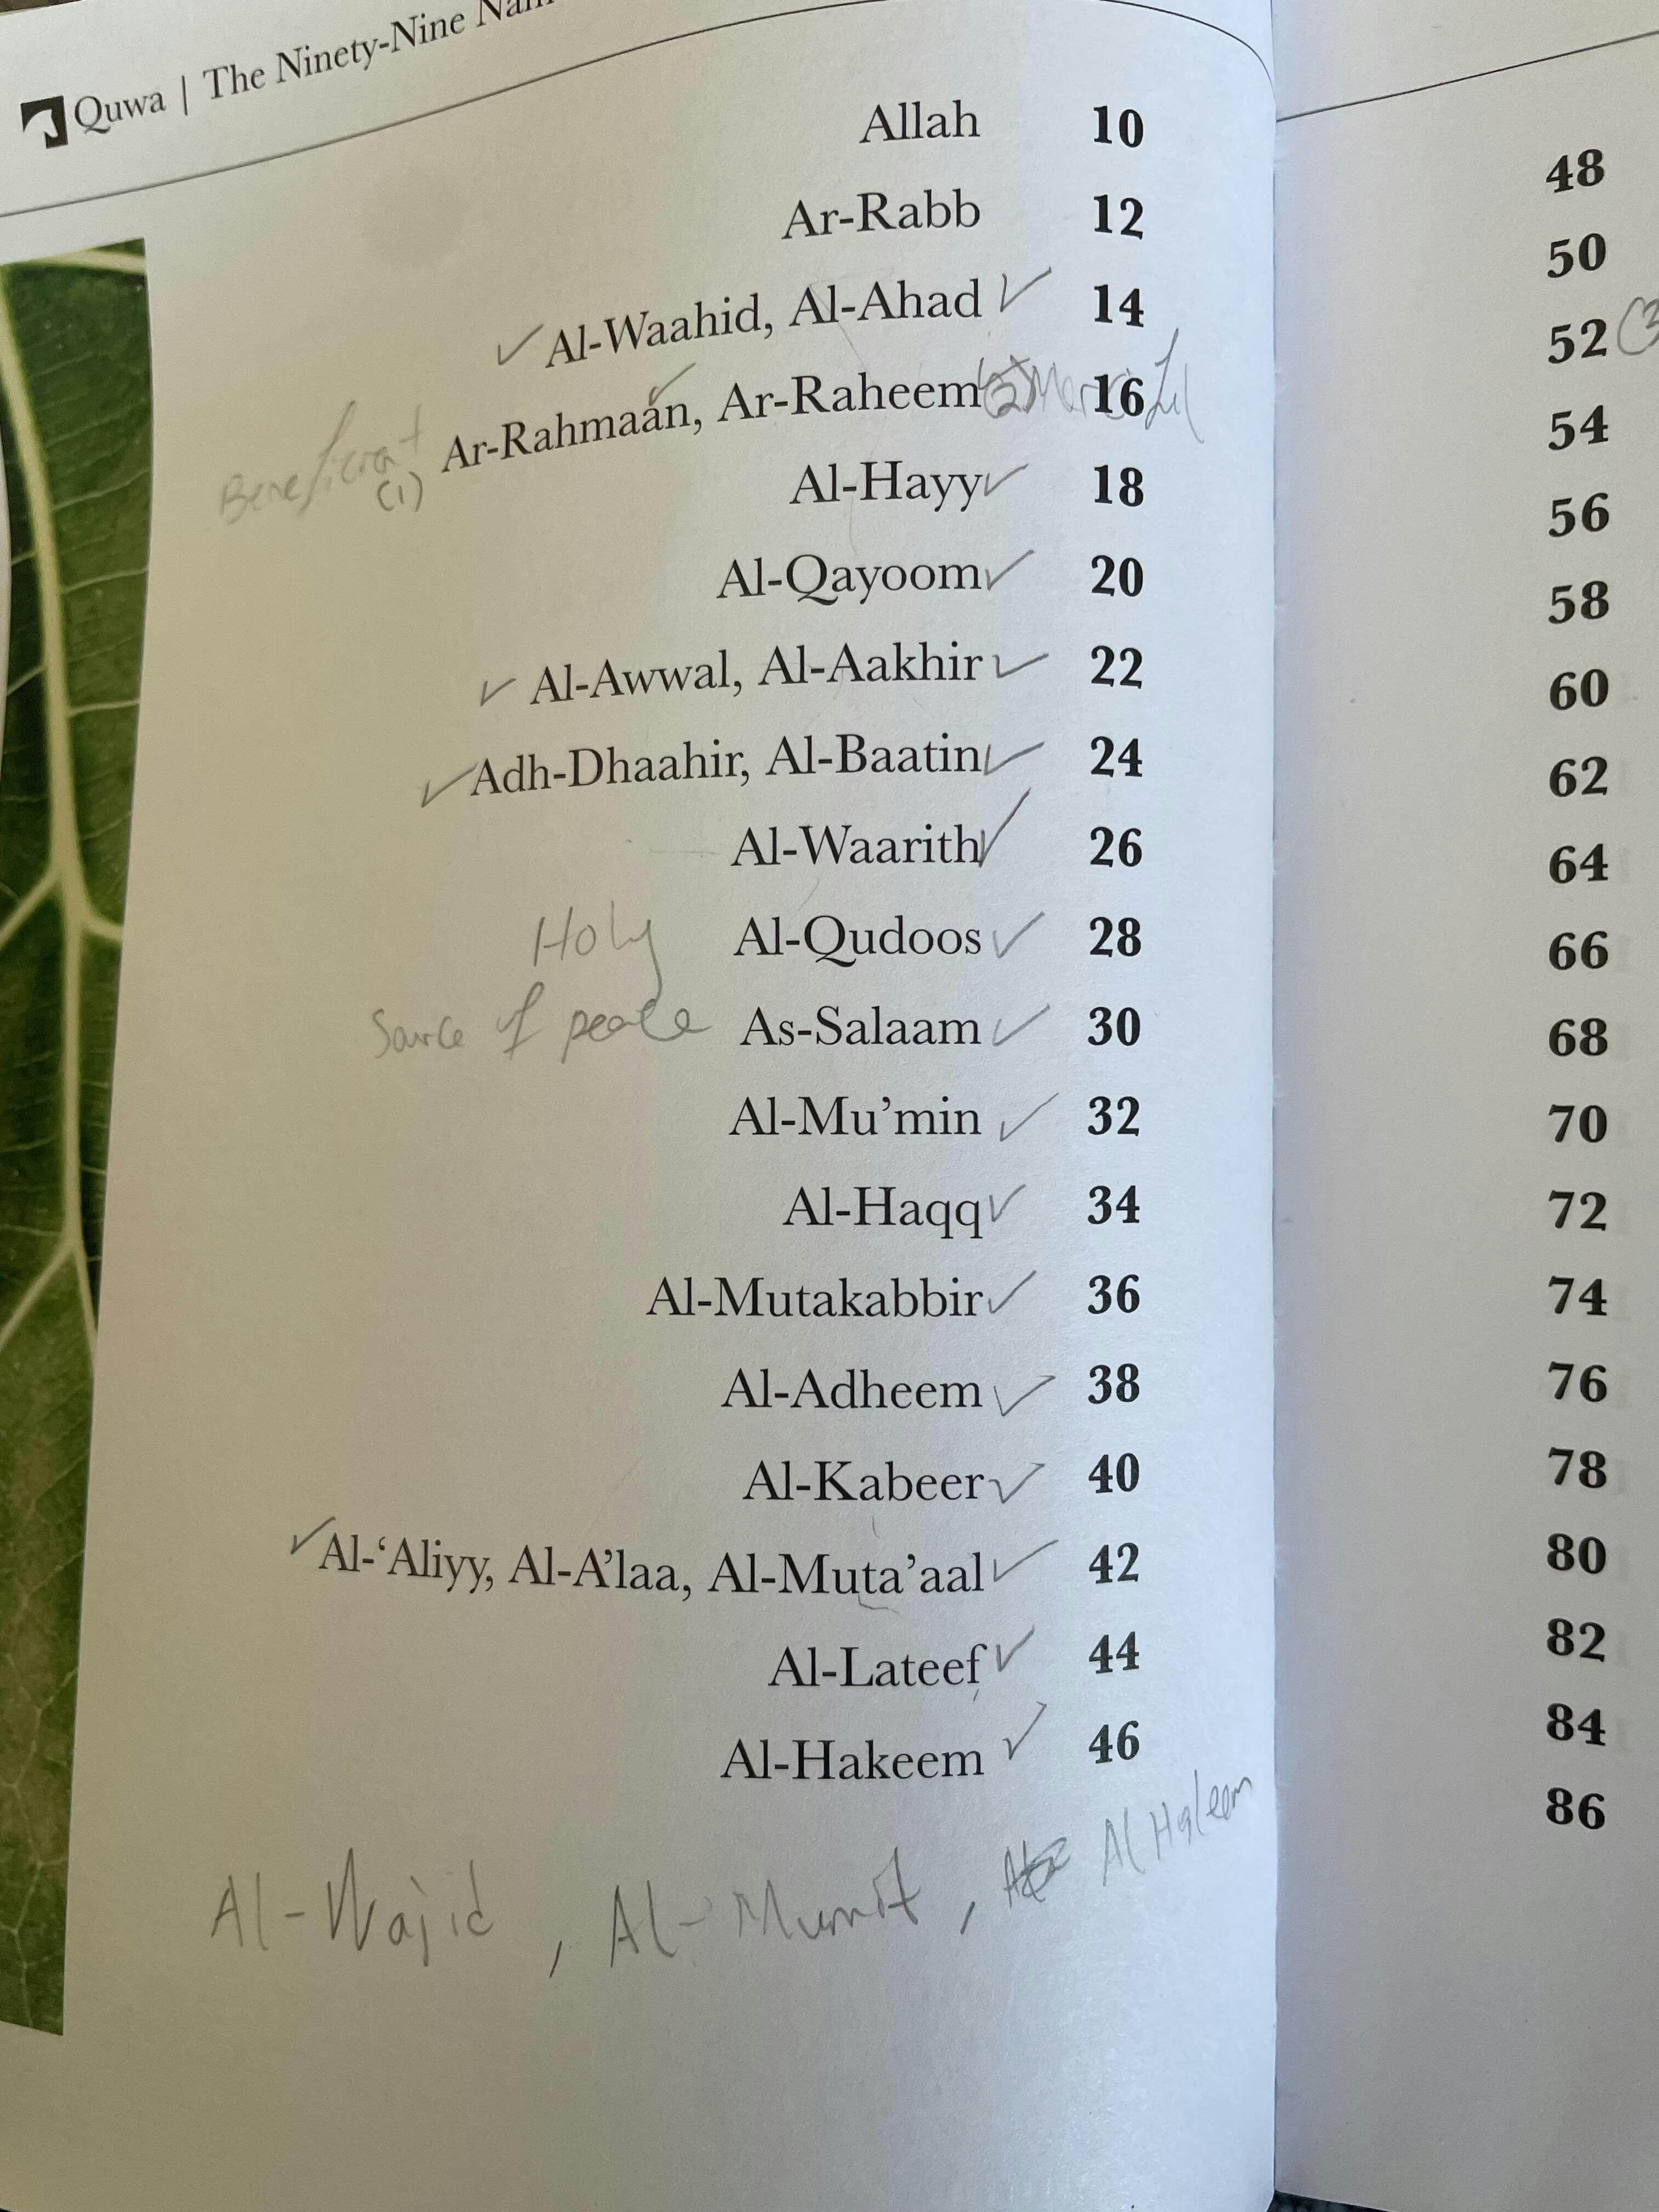 Quwa | The Ninety-Nine
Allah 10
Ar-Rabb 12
✓ Al-Waahid, Al-Ahad ✓ 14
Ar-Rahmaan, ✓ Ar-Raheem (2) Merciful 16
Beneficient (1)
Al-Hayy ✓ 18
Al-Qayoom ✓ 20
✓ Al-Awwal, Al-Aakhir ✓ 22
✓ Adh-Dhaahir, Al-Baatin ✓ 24
Al-Waarith ✓ 26
Holy Al-Qudoos ✓ 28
Source of peace As-Salaam ✓ 30
Al-Mu’min ✓ 32
Al-Haqq ✓ 34
Al-Mutakabbir ✓ 36
Al-Adheem ✓ 38
Al-Kabeer ✓ 40
✓ Al-‘Aliyy, Al-A’laa, Al-Muta’aal ✓ 42
Al-Lateef ✓ 44
Al-Hakeem ✓ 46
Al-Wajid, Al-Mumit, Al Haleem
48
50
52 (3
54
56
58
60
62
64
66
68
70
72
74
76
78
80
82
84
86